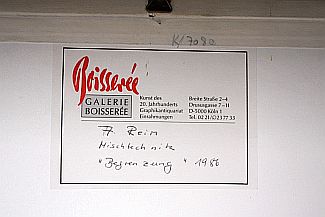 K/7080
Boisserée
GALERIE
BOISSERÉE
Kunst des
20. Jahrhunderts
Graphikantiquariat
Einrahmungen
Breite Straße 2–4
Drususgasse 7–11
D-5000 Köln 1
Tel. 02 21/2 37 7 33
A. Reim
Mischtechnik
"Begrenzung" 1986